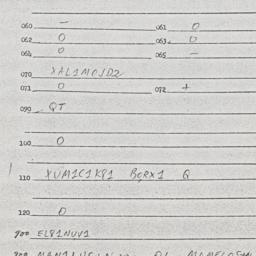 060 — 061 O
062 O 063. O
064 O 065 —
070 XAL1MOJD2
071 O 072 +
090 QT
100 O
110 XUM1C1K81 BQRX1 Q
120 O
700 EL81NUV1